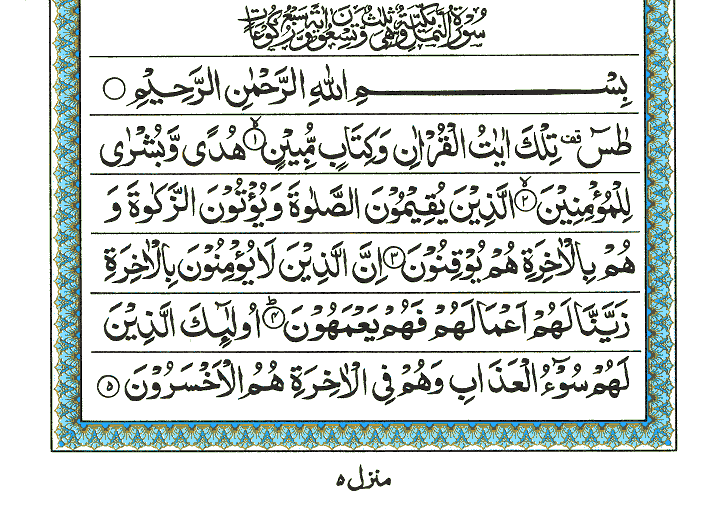 سُوْرَةُ النَّمْلِ مَكِّيَّةٌ وَّهِىَ ثَلٰثٌ وَّتِسْعُوْنَ اٰيَةً وَّسَبْعُ رُكُوْعَاتٍ
بِسْـــــمِ اللهِ الرَّحْمٰنِ الرَّحِيْمِ ○
طٰسٓ قف تِلْكَ اٰيٰتُ الْقُرْاٰنِ وَكِتَابٍ مُّبِيْنٍ ۙ﴿١﴾ هُدًى وَّبُشْرٰى
لِلْمُؤْمِنِيْنَ ۙ﴿٢﴾ الَّذِيْنَ يُقِيْمُوْنَ الصَّلٰوةَ وَيُؤْتُوْنَ الزَّكٰوةَ وَ
هُمْ بِالْاٰخِرَةِ هُمْ يُوْقِنُوْنَ ﴿٣﴾ اِنَّ الَّذِيْنَ لَا يُؤْمِنُوْنَ بِالْاٰخِرَةِ
زَيَّنَّا لَهُمْ اَعْمَالَهُمْ فَهُمْ يَعْمَهُوْنَ ؕ﴿۴﴾ اُولٰٓئِكَ الَّذِيْنَ
لَهُمْ سُوْٓءُ الْعَذَابِ وَهُمْ فِى الْاٰخِرَةِ هُمُ الْاَخْسَرُوْنَ ﴿۵﴾
منزل ۵